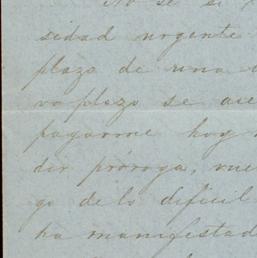 No se si
sidad urgente
plazo de una
vo plazo se
pagarme hoy
dir próroga, vue
go de lo dificil
ha manifestad